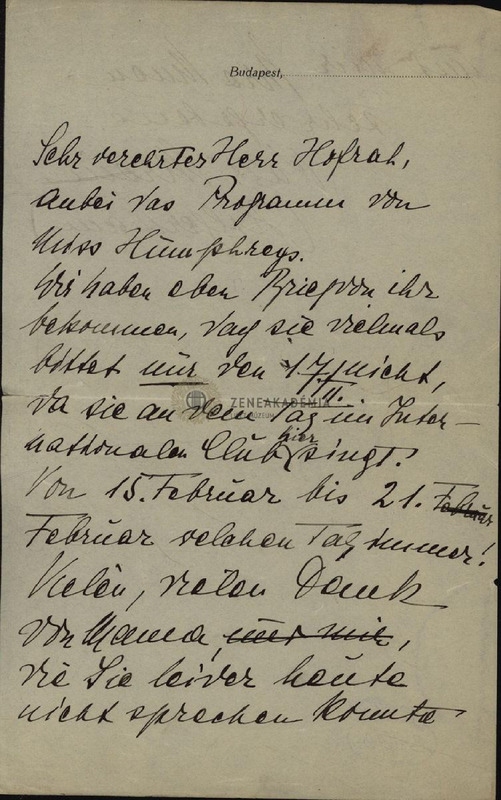 Budapest,
Sehr verehrter Herr Hofrat,
anbei das Programm von
Miss Humphreys.
Wir haben eben Brief von ihr
bekommen, daß sie vielmals
bittet nur den 17./II. nicht,
da sie an dem Tag im Inter-
ZENEAKADÉMIA
nationalen Club hier singt!
Von 15. Februar bis 21. Februar
Februar welchen Tag immer!
Vielen, vielen Dank
von Mama, und mir,
die Sie leider heute
nicht sprechen konnte